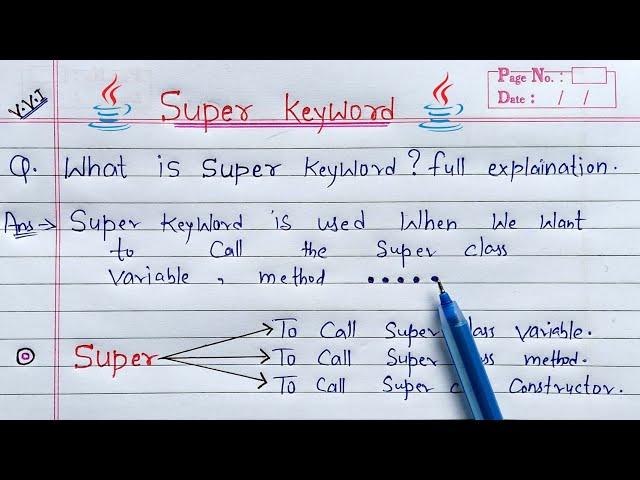 V.V.I
Super Keyword
Page No. :
Date : / /
Q. What is Super Keyword? full explaination.
Ans → Super Keyword is used When We Want
to Call the Super class
Variable, method .....
Super
To Call Super class Variable.
To Call Super class method.
To Call Super class Constructor.